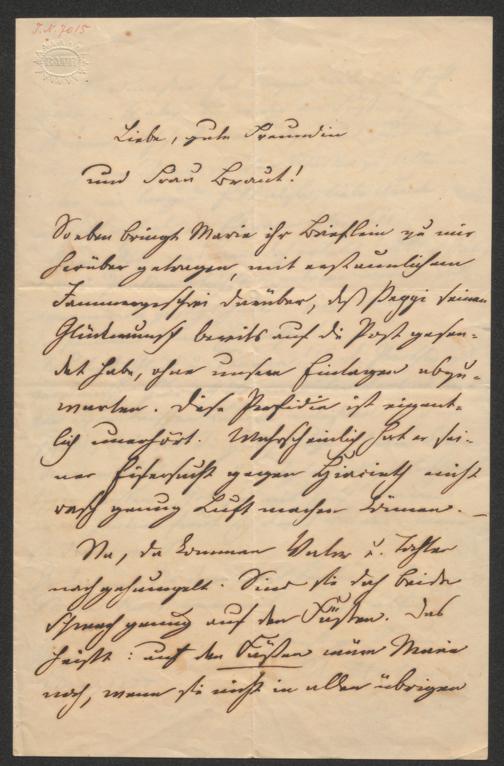 I.N. 7015
BATH
Liebe, gute Freundin
und Frau Braut!
Soeben bringt Marie ihr Brieflein zu mir
herüber getragen, mit erstaunlichem
Jammergeschrei darüber, daß Peppi seinen
Glückwunsch bereits auf die Post gesen-
det habe, ohne unsere Einlagen abzu-
warten. Diese Perfidie ist eigent-
lich unerhört. Wahrscheinlich hat er sei-
ner Eifersucht gegen Hiacinth nicht
rasch genug Luft machen können. –
Na, da kommen Vater u. Tochter
nachgehumpelt. Sind sie doch beide
schwach genug auf den Füßen. Das
heißt: auf den Füßen wäre Marie
noch, wenn sie nicht in allen übrigen